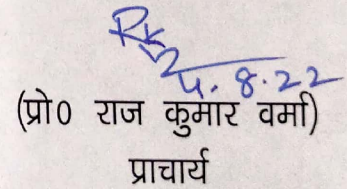 Rk
4.8.22
(प्रो0 राज कुमार वर्मा)
प्राचार्य